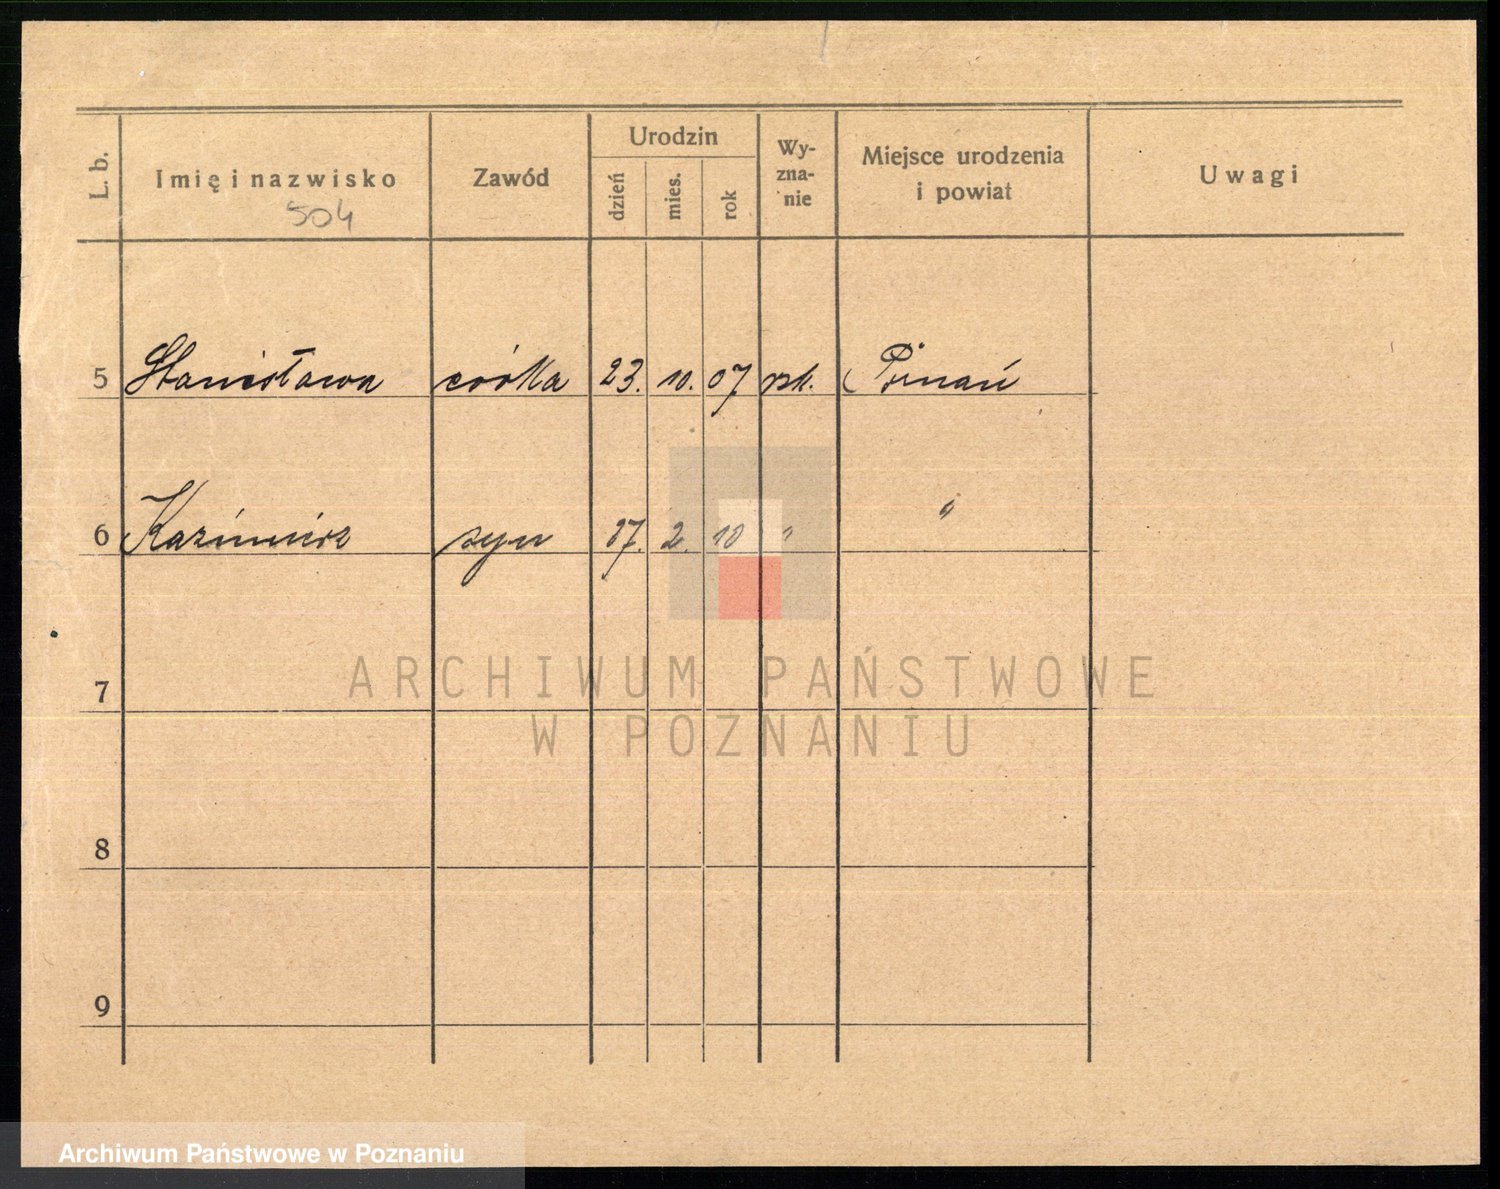 L. b. Imię i nazwisko Zawód Urodzin dzień mies. rok Wy-zna-nie Miejsce urodzenia i powiat Uwagi
504
5 Stanisława córka 23. 10. 07 rzk. Poznań
6 Kazimierz syn 2. 10 " "
7
8
9
ARCHIWUM PAŃSTWOWE
W POZNANIU
Archiwum Państwowe w Poznaniu